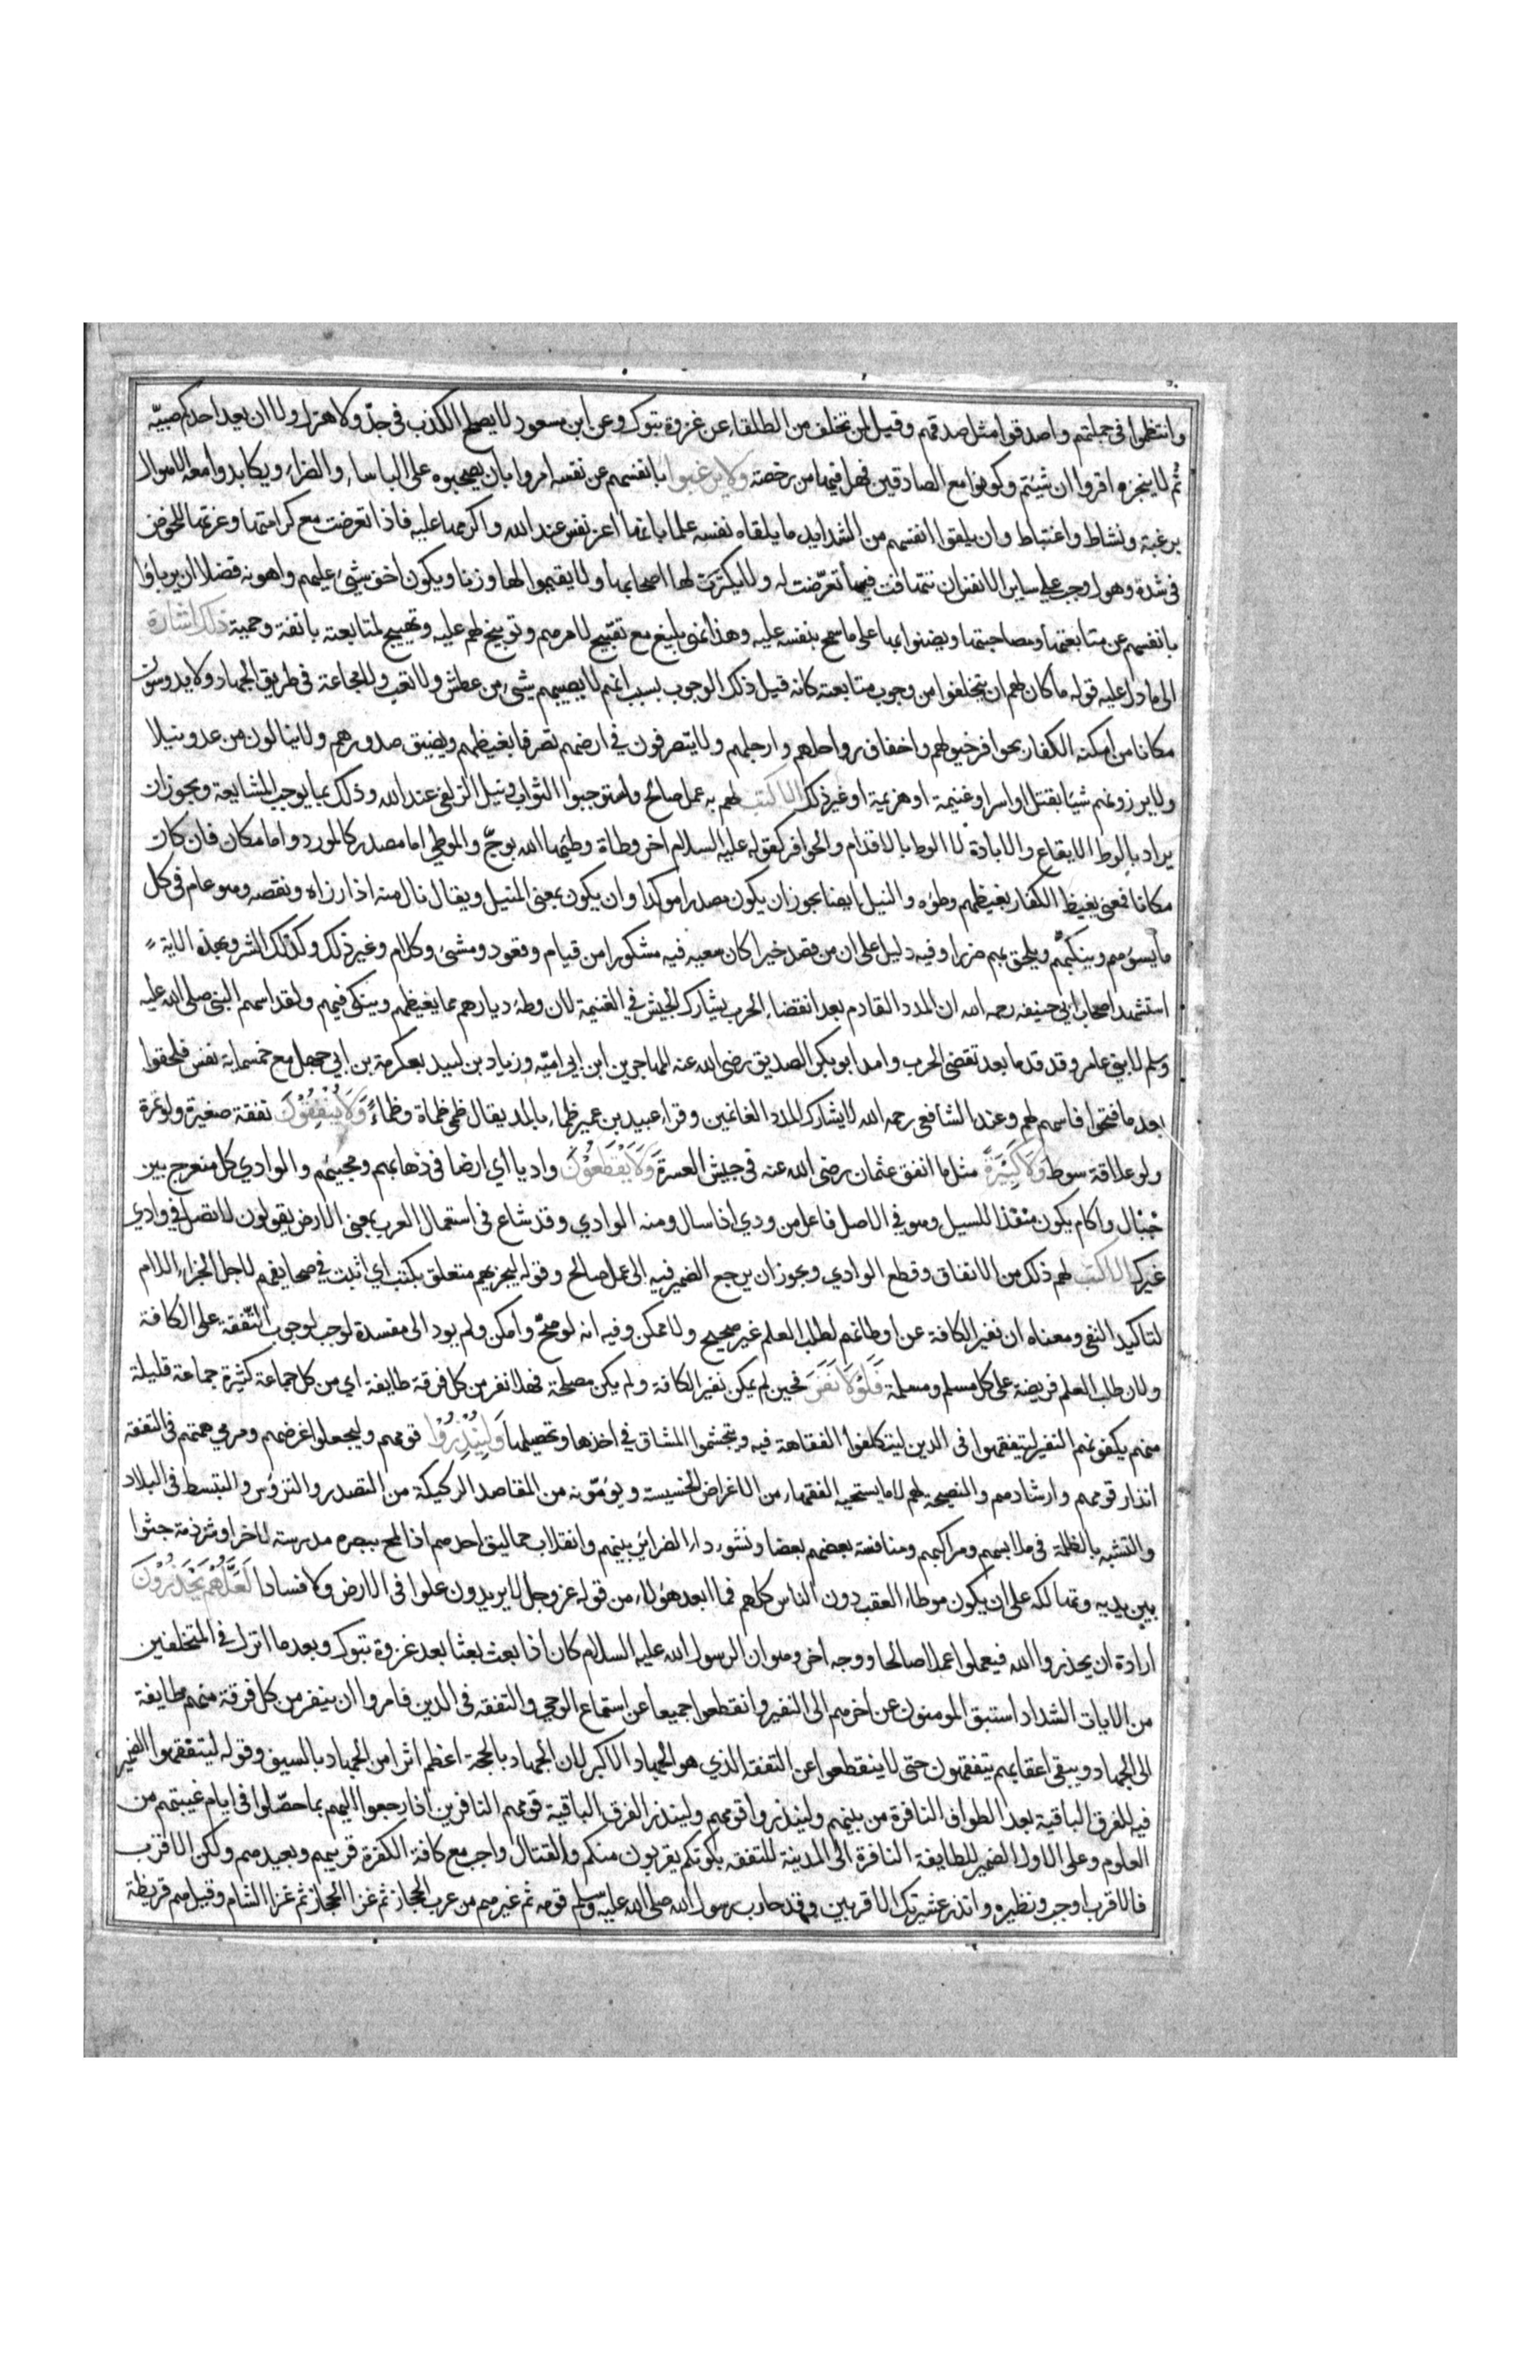 وانتظموا في جملتهم واصدقوا مثل صدقهم وقيل لمن تخلف من الطلقاء عن غزوة تبوك وعن ابن مسعود لا يصلح الكذب في جدّ ولا هزل ولا ان يعد احدكم صبيّه
ثم لا ينجزه اقروا ان شيتم وكونوا مع الصادقين فهل فيها من رخصة ولا يرغبوا بانفسهم عن نفسه امروا بان يصحبوه على الباساء والضراء ويكابدوا معه الاهوال
برغبة ونشاط واغتباط وان يلقوا انفسهم من الشدايد ما يلقاه نفسه علما بانها اعز نفس عند الله واكرمها عليه فاذا تعرضت مع كرامتها وعزتها للخوض
في شدة وهول وجب على ساير الانفس ان تتهافت فيما تعرّضت له ولا يكترث لها اصحابها ولا يقيموا لها وزنا ويكون اخف شئ عليهم واهونه فضلا ان يربأوا
بانفسهم عن متابعتها ومصاحبتها ويضنوا بها على ما سمح بنفسه عليه وهذا نهى بليغ مع تقبيح لامرهم وتوبيخ لهم عليه وتهييج لمتابعته بانفة وحمية ذلك اشارة
الى ما دل عليه قوله ما كان لهم ان يتخلفوا من وجوب متابعته كانه قيل ذلك الوجوب بسبب انهم لا يصيبهم شئ من عطش ولا تعب ولا مجاعة في طريق الجهاد ولا يدوسون
مكانا من امكنة الكفار بحوافر خيولهم واخفاف رواحلهم وارجلهم ولا يتصرفون في ارضهم تصرفا يغيظهم ويضيق صدورهم ولا ينالون من عدو نيلا
ولا يرزونهم شيا بقتل او اسر او غنيمة او هزيمة او غير ذلك الا كتب لهم به عمل صالح واستوجبوا الثواب ونيل الزلفى عند الله وذلك بما يوجب المشايعة ويجوز ان
يراد بالوطا الايقاع والابادة لا الوطا بالاقدام والحوافر كقوله عليه السلام اخر وطاة وطئها الله بوجّ والموطئ اما مصدر كالمورد واما مكان فان كان
مكانا فمعنى يغيظ الكفار يغيظهم وطؤه والنيل ايضا يجوز ان يكون مصدرا موكدا وان يكون بمعنى المنيل ويقال نال منه اذا رزاه ونقصه وهو عام في كل
ما يسؤهم وينكبهم ويلحق بهم ضررا وفيه دليل على ان من قصد خيرا كان سعيه فيه مشكورا من قيام وقعود ومشى وكلام وغير ذلك وكذلك الشر وبهذه الاية
استشهد اصحاب ابي حنيفه رحمه الله ان المدد القادم بعد انقضاء الحرب يشارك الجيش في الغنيمة لان وطء ديارهم مما يغيظهم وينكى فيهم ولقد اسهم النبى صلى الله عليه
وسلم لابني عامر وقد قدما بعد تقضى الحرب وامد ابو بكر الصديق رضى الله عنه المهاجر بن ابى اميّه وزياد بن لبيد بعكرمة بن ابى جهل مع خمسماية نفس فلحقوا
بعد ما فتحوا فاسهم لهم وعند الشافعى رحمه الله لا يشارك المدد الغانمين وقرا عبيد بن عمير ظماء بالمد يقال ظمئ ظماة وظماءً وَلَا يُنْفِقُوْنَ نفقة صغيرة ولو تمرة
ولو علاقة سوط وَلَا كَبِيْرَةً مثل ما انفق عثمان رضى الله عنه في جيش العسرة وَلَا يَقْطَعُوْنَ واديا اي ارضا في ذهابهم ومجيئهم والوادي كل منعرج بين
جبال واكام يكون منفذا للسيل وهو في الاصل فاعل من ودي اذا سال ومنه الوادي وقد شاع في استعمال العرب بمعنى الارض يقولون لا تصل في وادي
غيرك الا كتب لهم ذلك من الانفاق وقطع الوادي ويجوز ان يرجع الضمير فيه الى عمل صالح وقوله ليجزيهم متعلق بكتب اي اثبت في صحايفهم لاجل الجزاء اللام
لتاكيد النفى ومعناه ان نفير الكافة عن اوطانهم لطلب العلم غير صحيح ولا ممكن وفيه انه لو صحّ وامكن ولم يود الى مفسدة لوجب لوجوب التفقة على الكافة
ولان طلب العلم فريضة على كل مسلم ومسلمة فَلَوْلَا نَفَرَ فحين لم يمكن نفير الكافة ولم يكن مصلحة فهلا نفر من كل فرقة طايفة اي من كل جماعة كثيرة جماعة قليلة
منهم يكفونهم النفير ليتفقهوا في الدين ليتكلفوا الفقاهة فيه ويتجشموا المشاق في اخذها وتحصيلها وَلِيُنْذِرُوْا قومهم وليجعلوا غرضهم ومرمى همتهم في التفقه
انذار قومهم وارشادهم والنصيحة لهم لا ما يستحيه الفقهاء من الاغراض الخسيسة ويؤمّونه من المقاصد الركيكة من التصدر والترؤس والتبسط في البلاد
والتشبه بالظلمة في ملابسهم ومراكبهم ومنافسة بعضهم بعضا ونشور داء الضرائر بينهم وانقلاب حماليق احدهم اذا لمح ببصره مدرسة لاخر او شرذمة جثوا
بين يديه وتهالكه على ان يكون موطاء العقب دون الناس كلهم فما ابعد هؤلاء من قوله عز وجل لا يريدون علوا في الارض ولا فسادا لَعَلَّهُمْ يَحْذَرُوْنَ
ارادة ان يحذروا الله فيعملوا عملا صالحا ووجه اخر وهو ان الرسول الله عليه السلام كان اذا بعث بعثا بعد غزوة تبوك وبعد ما انزل في المتخلفين
من الايات الشداد استبق المومنون عن اخرهم الى النفير وانقطعوا جميعا عن استماع الوحي والتفقه في الدين فامروا ان ينفر من كل فرقة منهم طايفة
الى الجهاد ويبقى اعقابهم يتفقهون حتى لا ينقطعوا عن التفقه الذي هو الجهاد الاكبر لان الجهاد بالحجة اعظم اثرا من الجهاد بالسيف وقوله ليتفقهوا الضمير
فيه للفرق الباقية بعد الطوايف النافرة من بينهم ولينذروا قومهم ولينذر الفرق الباقية قومهم النافرين اذا رجعوا اليهم بما حصّلوا في ايام غيبتهم من
العلوم وعلى الاول الضمير للطايفة النافرة الى المدينة للتفقه يلونكم يقربون منكم والقتال واجب مع كافة الكفرة قريبهم وبعيدهم ولكن الاقرب
فالاقرب اوجب ونظيره وانذر عشيرتك الاقربين وقد حارب رسول الله صلى الله عليه وسلم قومه ثم غيرهم من عرب الحجاز ثم غزا الحجاز ثم غزا الشام وقيل هم قريظة